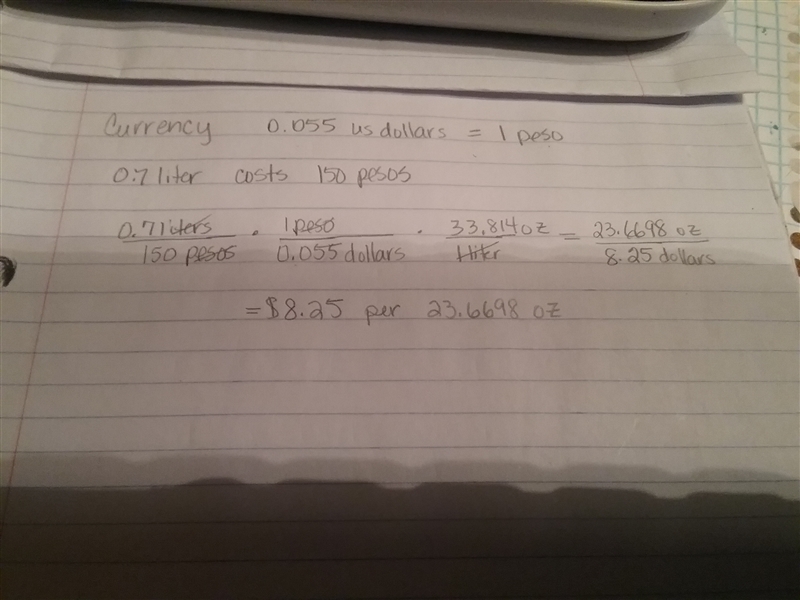 Currency 0.055 us dollars = 1 peso
0.7 liter costs 150 pesos
0.7 liters / 150 pesos · 1 peso / 0.055 dollars · 33.814 oz / 1 liter = 23.6698 oz / 8.25 dollars
= $8.25 per 23.6698 oz